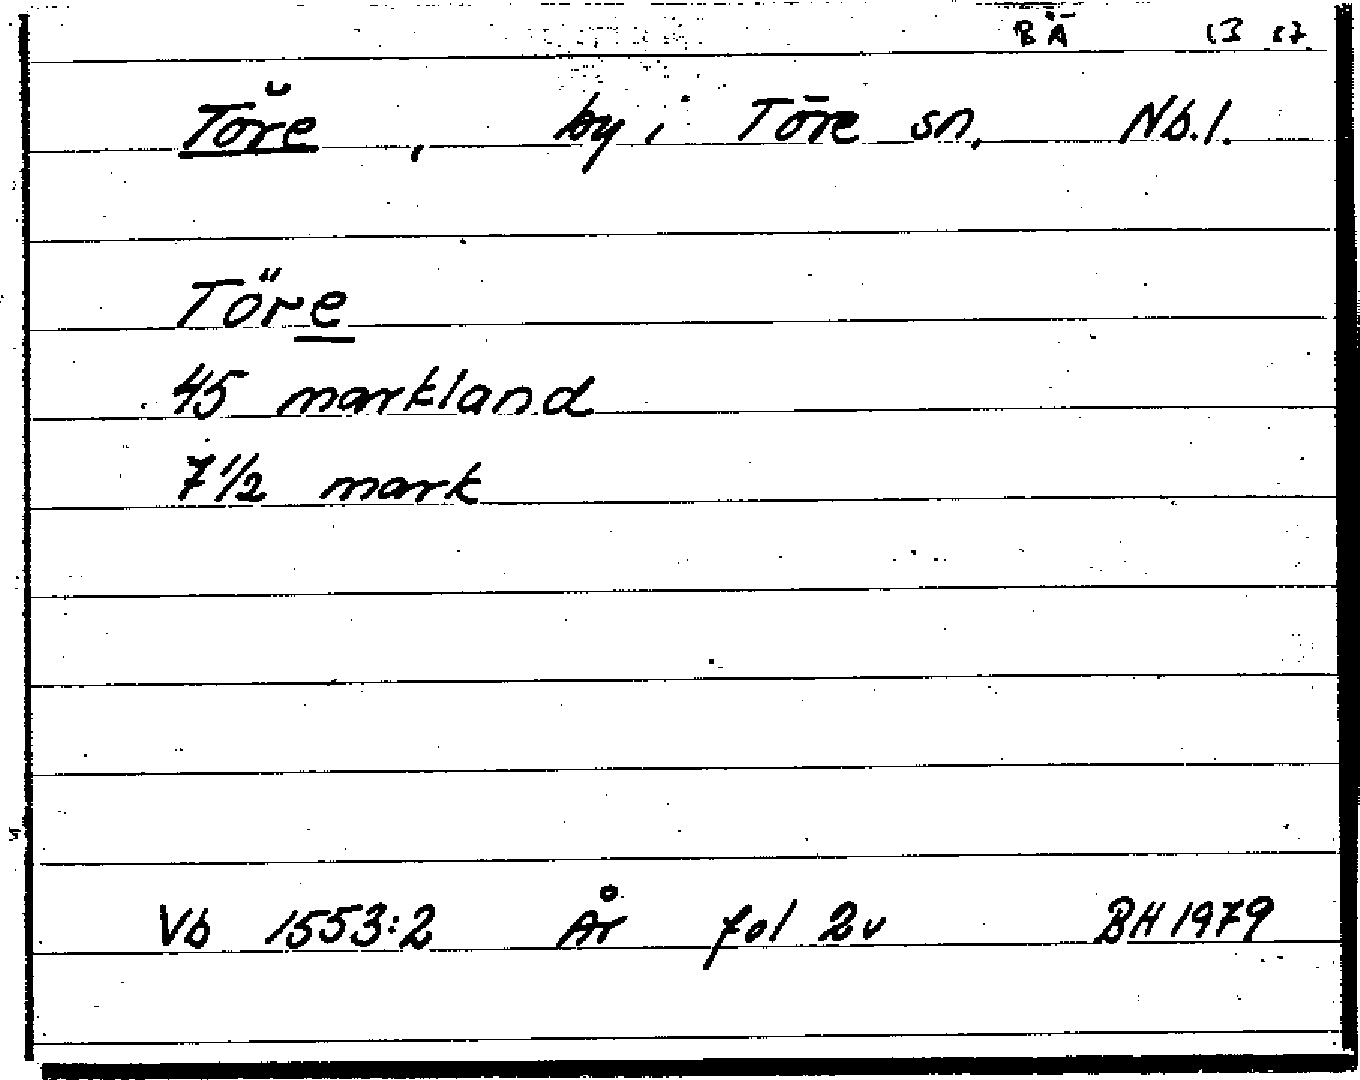 BÄ 13 17
Töre, by i Töre sn, Nb.l.
Töre
45 markland
7 1/2 mark
Vb 1553:2 År fol 2v BH 1979